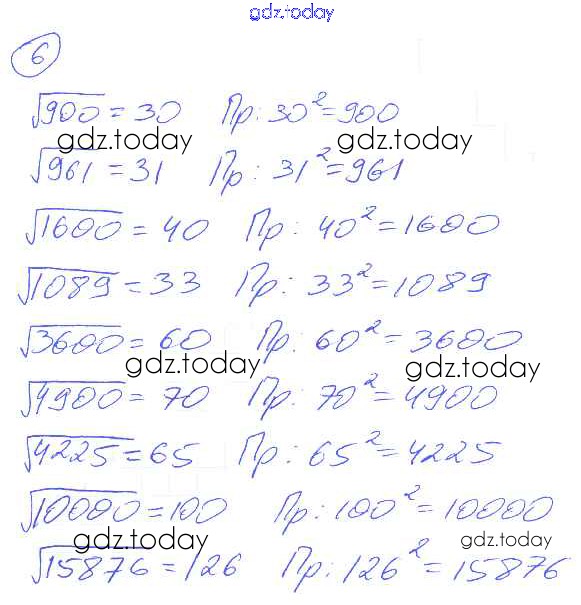 gdz.today
6
√900 = 30 Пр: 30² = 900
gdz.today gdz.today
√961 = 31 Пр: 31² = 961
√1600 = 40 Пр: 40² = 1600
√1089 = 33 Пр: 33² = 1089
√3600 = 60 Пр: 60² = 3600
gdz.today gdz.today
√4900 = 70 Пр: 70² = 4900
√4225 = 65 Пр: 65² = 4225
√10000 = 100 Пр: 100² = 10000
gdz.today gdz.today
√15876 = 126 Пр: 126² = 15876